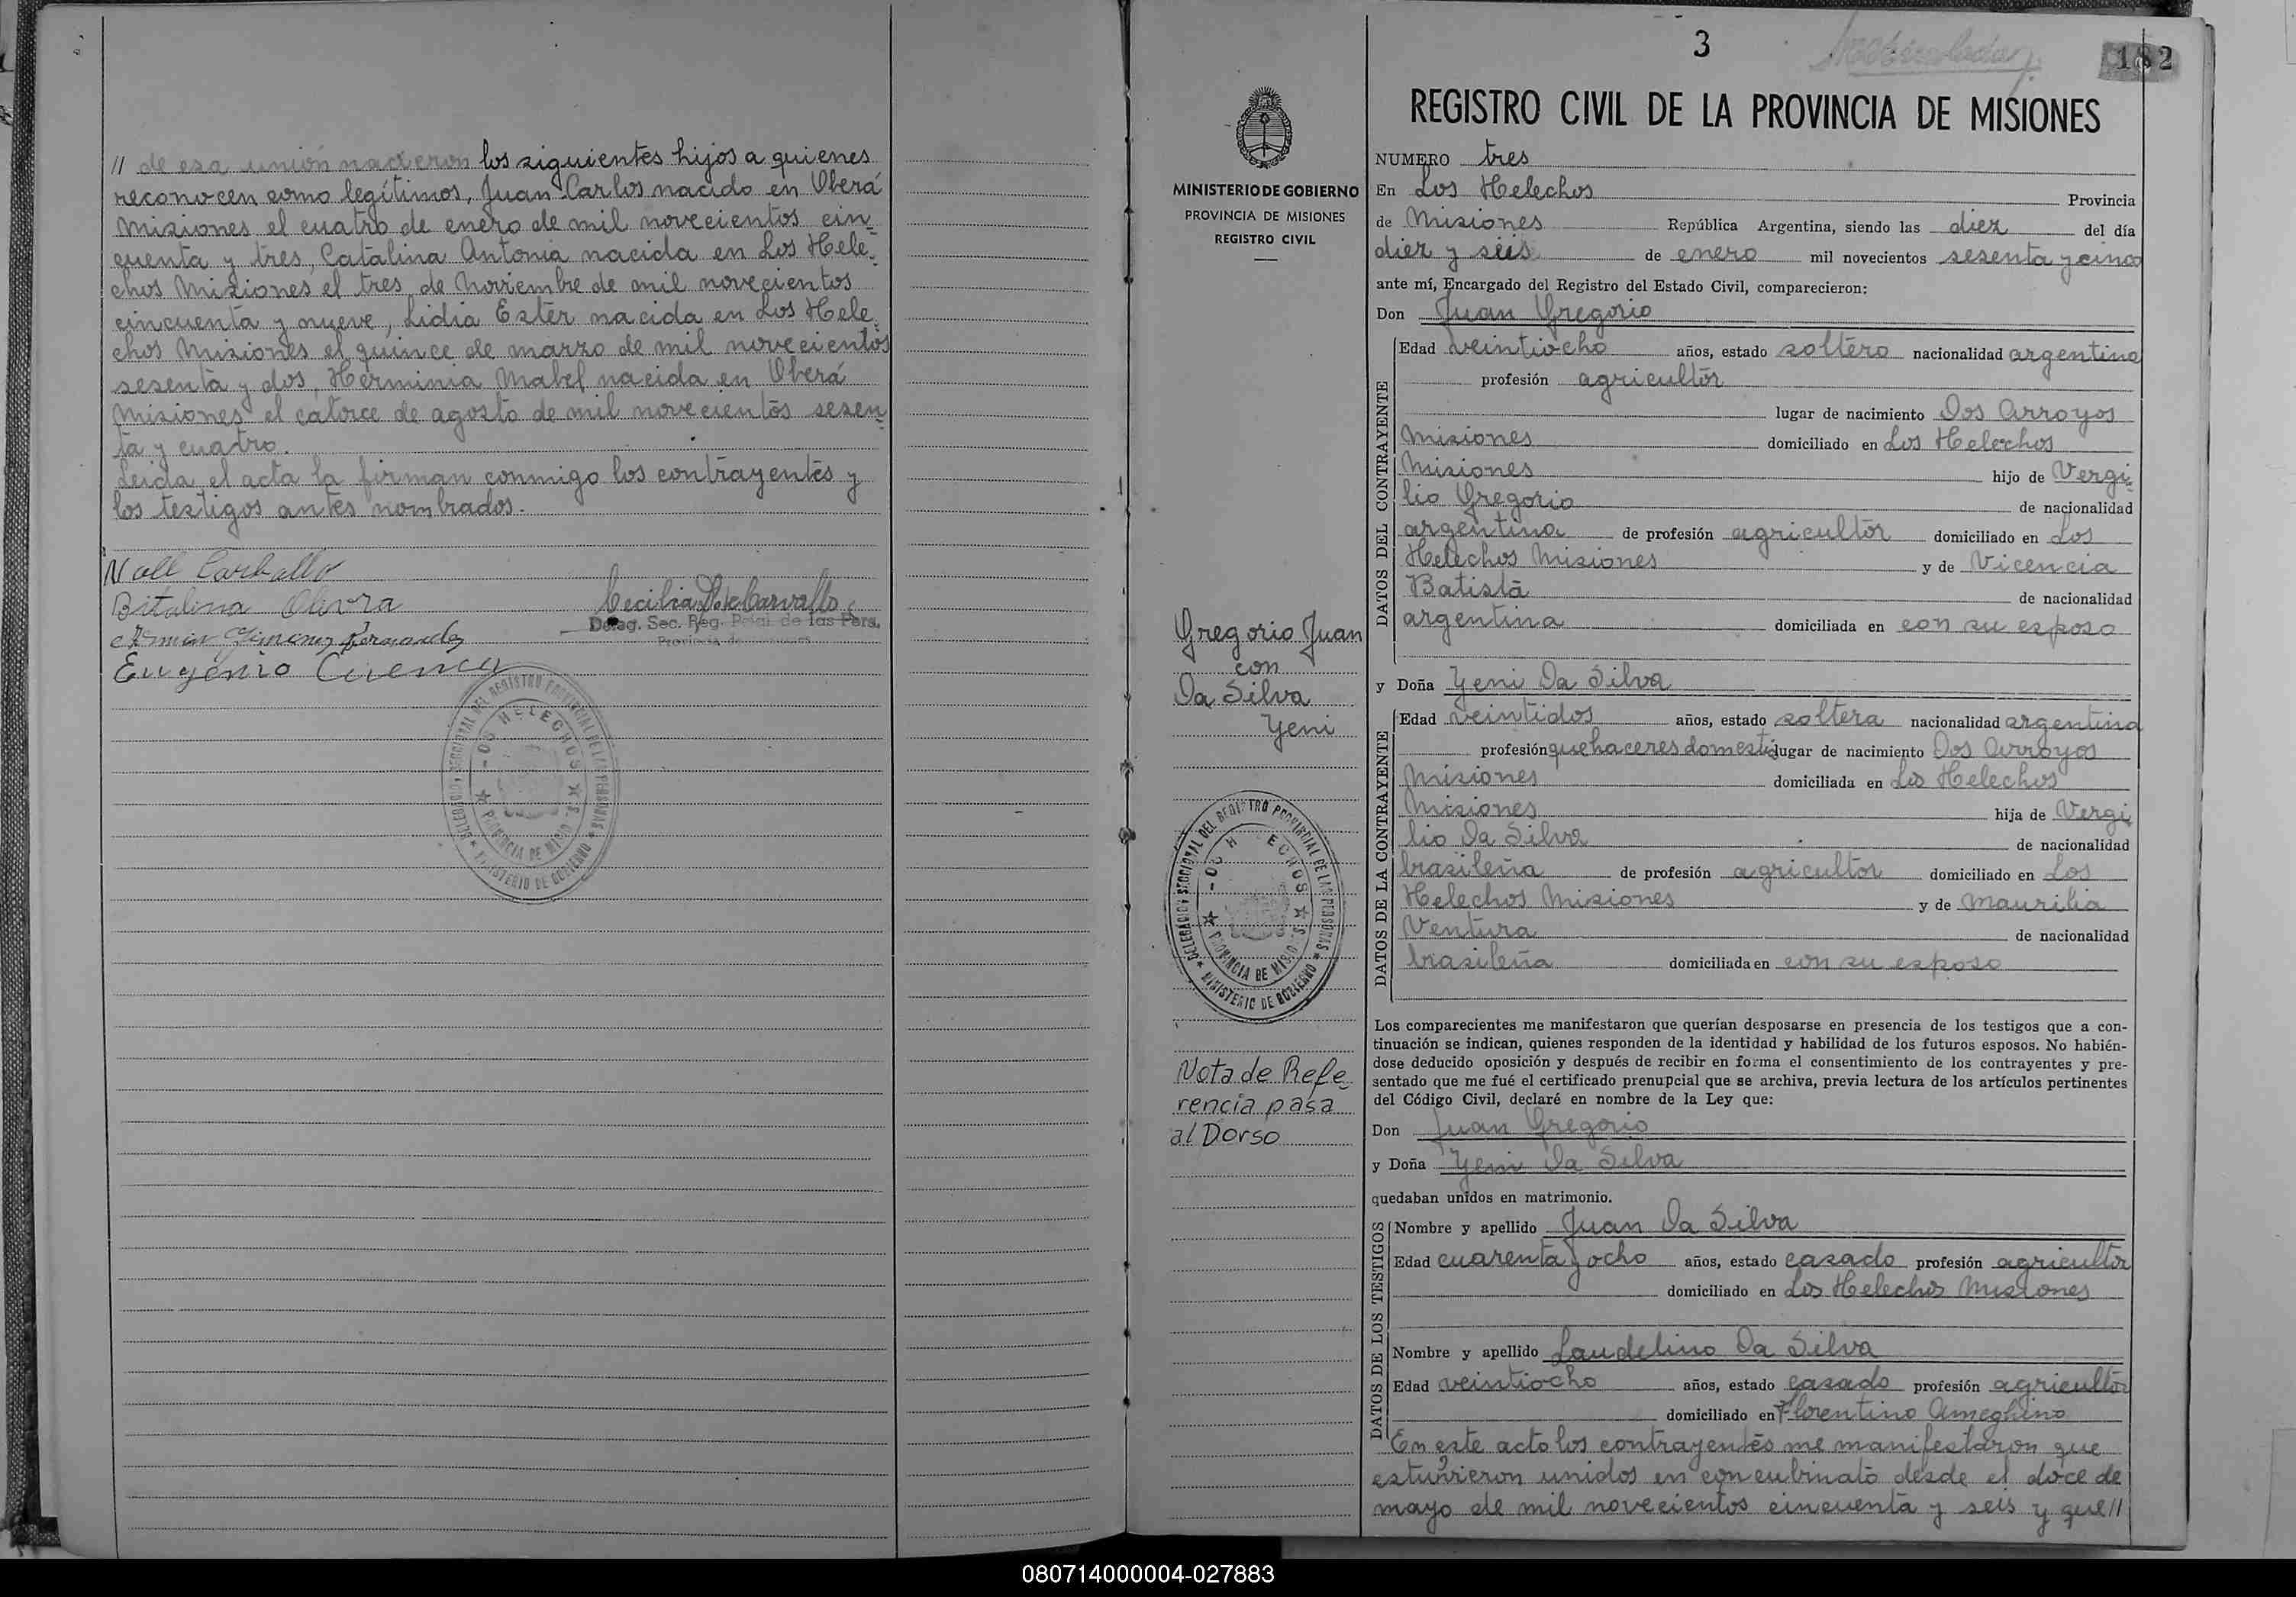 // de esa unión nacieron los siguientes hijos a quienes
reconocen como legítimos, Juan Carlos nacido en Oberá
Misiones el cuatro de enero de mil novecientos cin-
cuenta y tres, Catalina Antonia nacida en Los Hele-
chos Misiones el tres de Noviembre de mil novecientos
cincuenta y nueve, Lidia Ester nacida en Los Hele-
chos Misiones el quince de marzo de mil novecientos
sesenta y dos, Herminia Mabel nacida en Oberá
Misiones el catorce de agosto de mil novecientos sesen-
ta y cuatro.
Leida el acta la firman conmigo los contrayentes y
los testigos antes nombrados.
Carballo
Bitalina Olivra
Cecilia de Carvallo
Deleg. Sec. Reg. Pcial. de las Pers.
Provincia de
Eugenio Cuenca
DELEGACION SECCIONAL DEL REGISTRO PROVINCIAL DE LAS PERSONAS
LOS HELECHOS
PROVINCIA DE MISIONES
MINISTERIO DE GOBIERNO
3
182
REGISTRO CIVIL DE LA PROVINCIA DE MISIONES
MINISTERIO DE GOBIERNO
PROVINCIA DE MISIONES
REGISTRO CIVIL
Gregorio Juan
con
Da Silva
Yeni
DELEGACION SECCIONAL DEL REGISTRO PROVINCIAL DE LAS PERSONAS
LOS HELECHOS
PROVINCIA DE MISIONES
MINISTERIO DE GOBIERNO
Nota de Refe-
rencia pasa
al Dorso
NUMERO tres
En Los Helechos Provincia
de Misiones República Argentina, siendo las diez del día
diez y seis de enero mil novecientos sesenta y cinco
ante mí, Encargado del Registro del Estado Civil, comparecieron:
Don Juan Gregorio
DATOS DEL CONTRAYENTE
Edad veintiocho años, estado soltero nacionalidad argentina
profesión agricultor
lugar de nacimiento Dos Arroyos
Misiones domiciliado en Los Helechos
Misiones hijo de Vergi-
lio Gregorio de nacionalidad
argentina de profesión agricultor domiciliado en Los
Helechos Misiones y de Vicencia
Batista de nacionalidad
argentina domiciliada en con su esposo
y Doña Yeni Da Silva
DATOS DE LA CONTRAYENTE
Edad veintidos años, estado soltera nacionalidad argentina
profesión quehaceres domesti lugar de nacimiento Dos Arroyos
Misiones domiciliada en Los Helechos
Misiones hija de Vergi
lio Da Silva de nacionalidad
brasileña de profesión agricultor domiciliado en Los
Helechos Misiones y de Maurilia
Ventura de nacionalidad
brasileña domiciliada en con su esposo
Los comparecientes me manifestaron que querían desposarse en presencia de los testigos que a con-
tinuación se indican, quienes responden de la identidad y habilidad de los futuros esposos. No habién-
dose deducido oposición y después de recibir en forma el consentimiento de los contrayentes y pre-
sentado que me fué el certificado prenupcial que se archiva, previa lectura de los artículos pertinentes
del Código Civil, declaré en nombre de la Ley que:
Don Juan Gregorio
y Doña Yeni Da Silva
quedaban unidos en matrimonio.
DATOS DE LOS TESTIGOS
Nombre y apellido Juan Da Silva
Edad cuarenta y ocho años, estado casado profesión agricultor
domiciliado en Los Helechos Misiones
Nombre y apellido Laudelino Da Silva
Edad veintiocho años, estado casado profesión agricultor
domiciliado en Florentino Ameghino
En este acto los contrayentes me manifestaron que
estuvieron unidos en concubinato desde el doce de
mayo de mil novecientos cincuenta y seis y que //
080714000004-027883